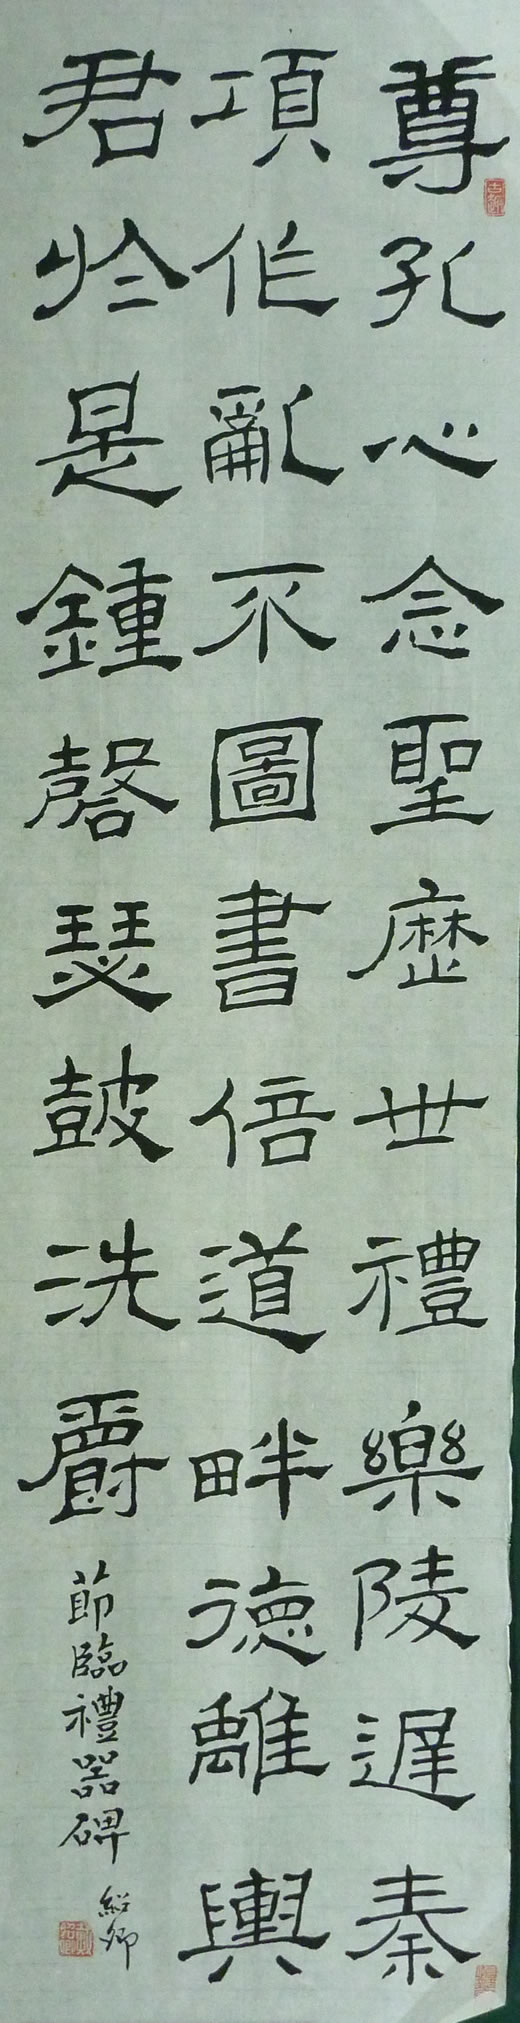 尊孔心念聖歷世禮樂陵遲秦
項作亂不圖書倍道畔德離輿
君於是鍾磬瑟鼓洗爵
節臨禮器碑
紹卿